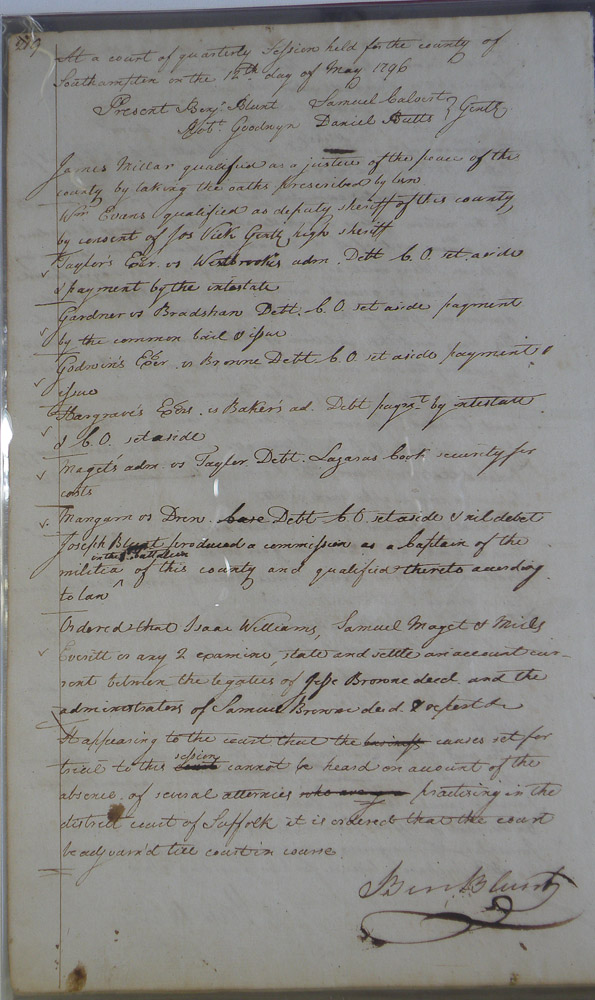 At a court of quarterly Session held for the county of
Southampton on the 12th day of May 1796
Present Benjn Blunt Samuel Calvert } Gentn
Robt. Goodwyn Daniel Butts
James Millar qualified as a justice of the peace of the
county by taking the oaths prescribed by law
Wm Evans qualified as deputy sheriff of this county
by consent of Jos Vick Gentn high sheriff
Taylor's Exr. vs Westbrook's adm. Debt C. O. set aside
& payment by the intestate
Gardner vs Bradshaw Debt. C. O. set aside payment
by the common bail & issue
Godwin's Exer. vs Browne Debt C. O. set aside payment &
issue
Hargrave's Exrs. vs Baker's ad. Debt paymt. by intestate
& C. O. set aside
Maget's adm. vs Taylor Debt. Lazarus Cook security for
costs
Mangum vs Drew. case Debt C. O. set aside & nil debet
Joseph Blunt produced a commission as a Captain of the
in the battalion
militia of this county and qualified thereto according
to law
Ordered that Isaac Williams, Samuel Maget & Mills
Everitt or any 2 examine, state and settle an account cur-
rent between the legatees of Jesse Browne decd and the
administrators of Samuel Browne decd & report &c
It appearing to the court that the business causes set for
session
trial to this court cannot be heard on account of the
absence of several attornies who are practising in the
district court of Suffolk it is ordered that the court
be adjourn'd till court in course
Ben Blunt